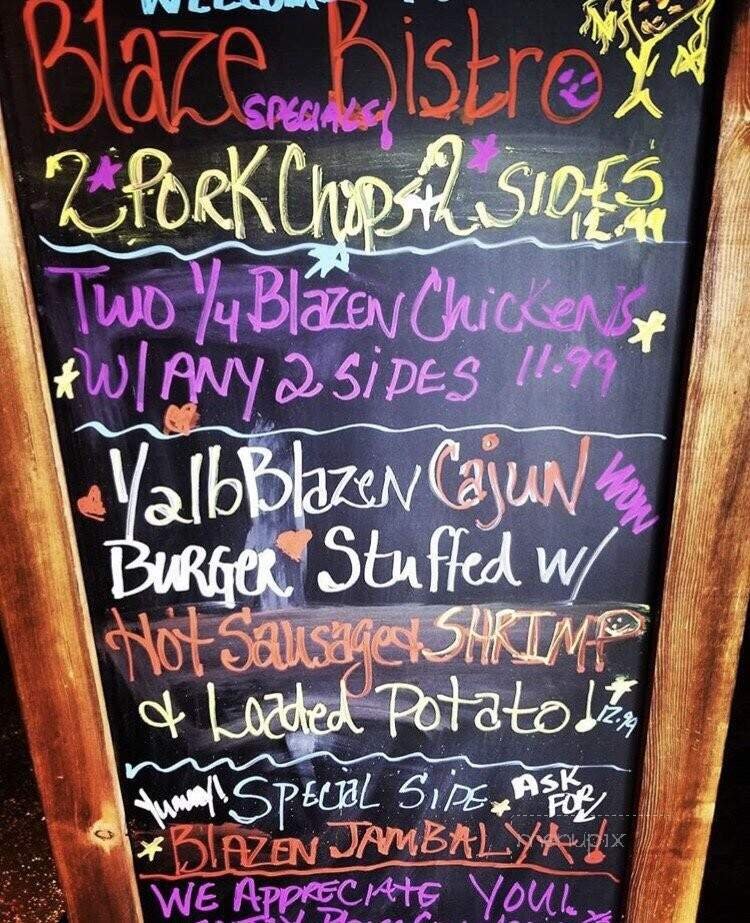 Blaze Bistro
SPECIALS
2 PORK Chops + 2 SIDES
12.99
Two 1/4 BLAZEN ChickenS
W/ ANY 2 SiDES 11.99
1/2 lb BlazeN CajuN WOW
BURGER Stuffed w/
Hot Sausage & SHRIMP
& Loaded Potato! 12.99
Yummy! SPECIAL SIDE ASK
FOR/
BLAZEN JAMBALYA!
menupix
WE APPRECIATE YOU!